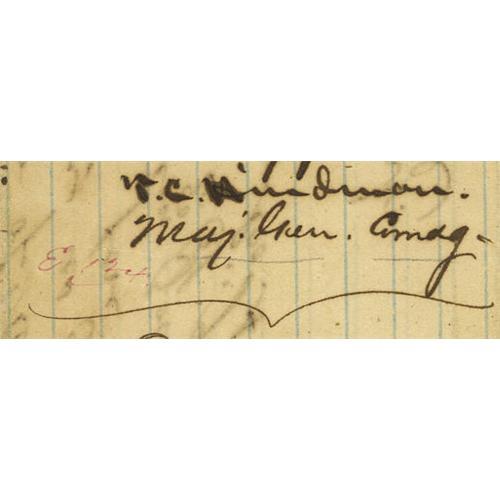 T. C. Hindman.
Maj. Gen. Comdg.
E 124